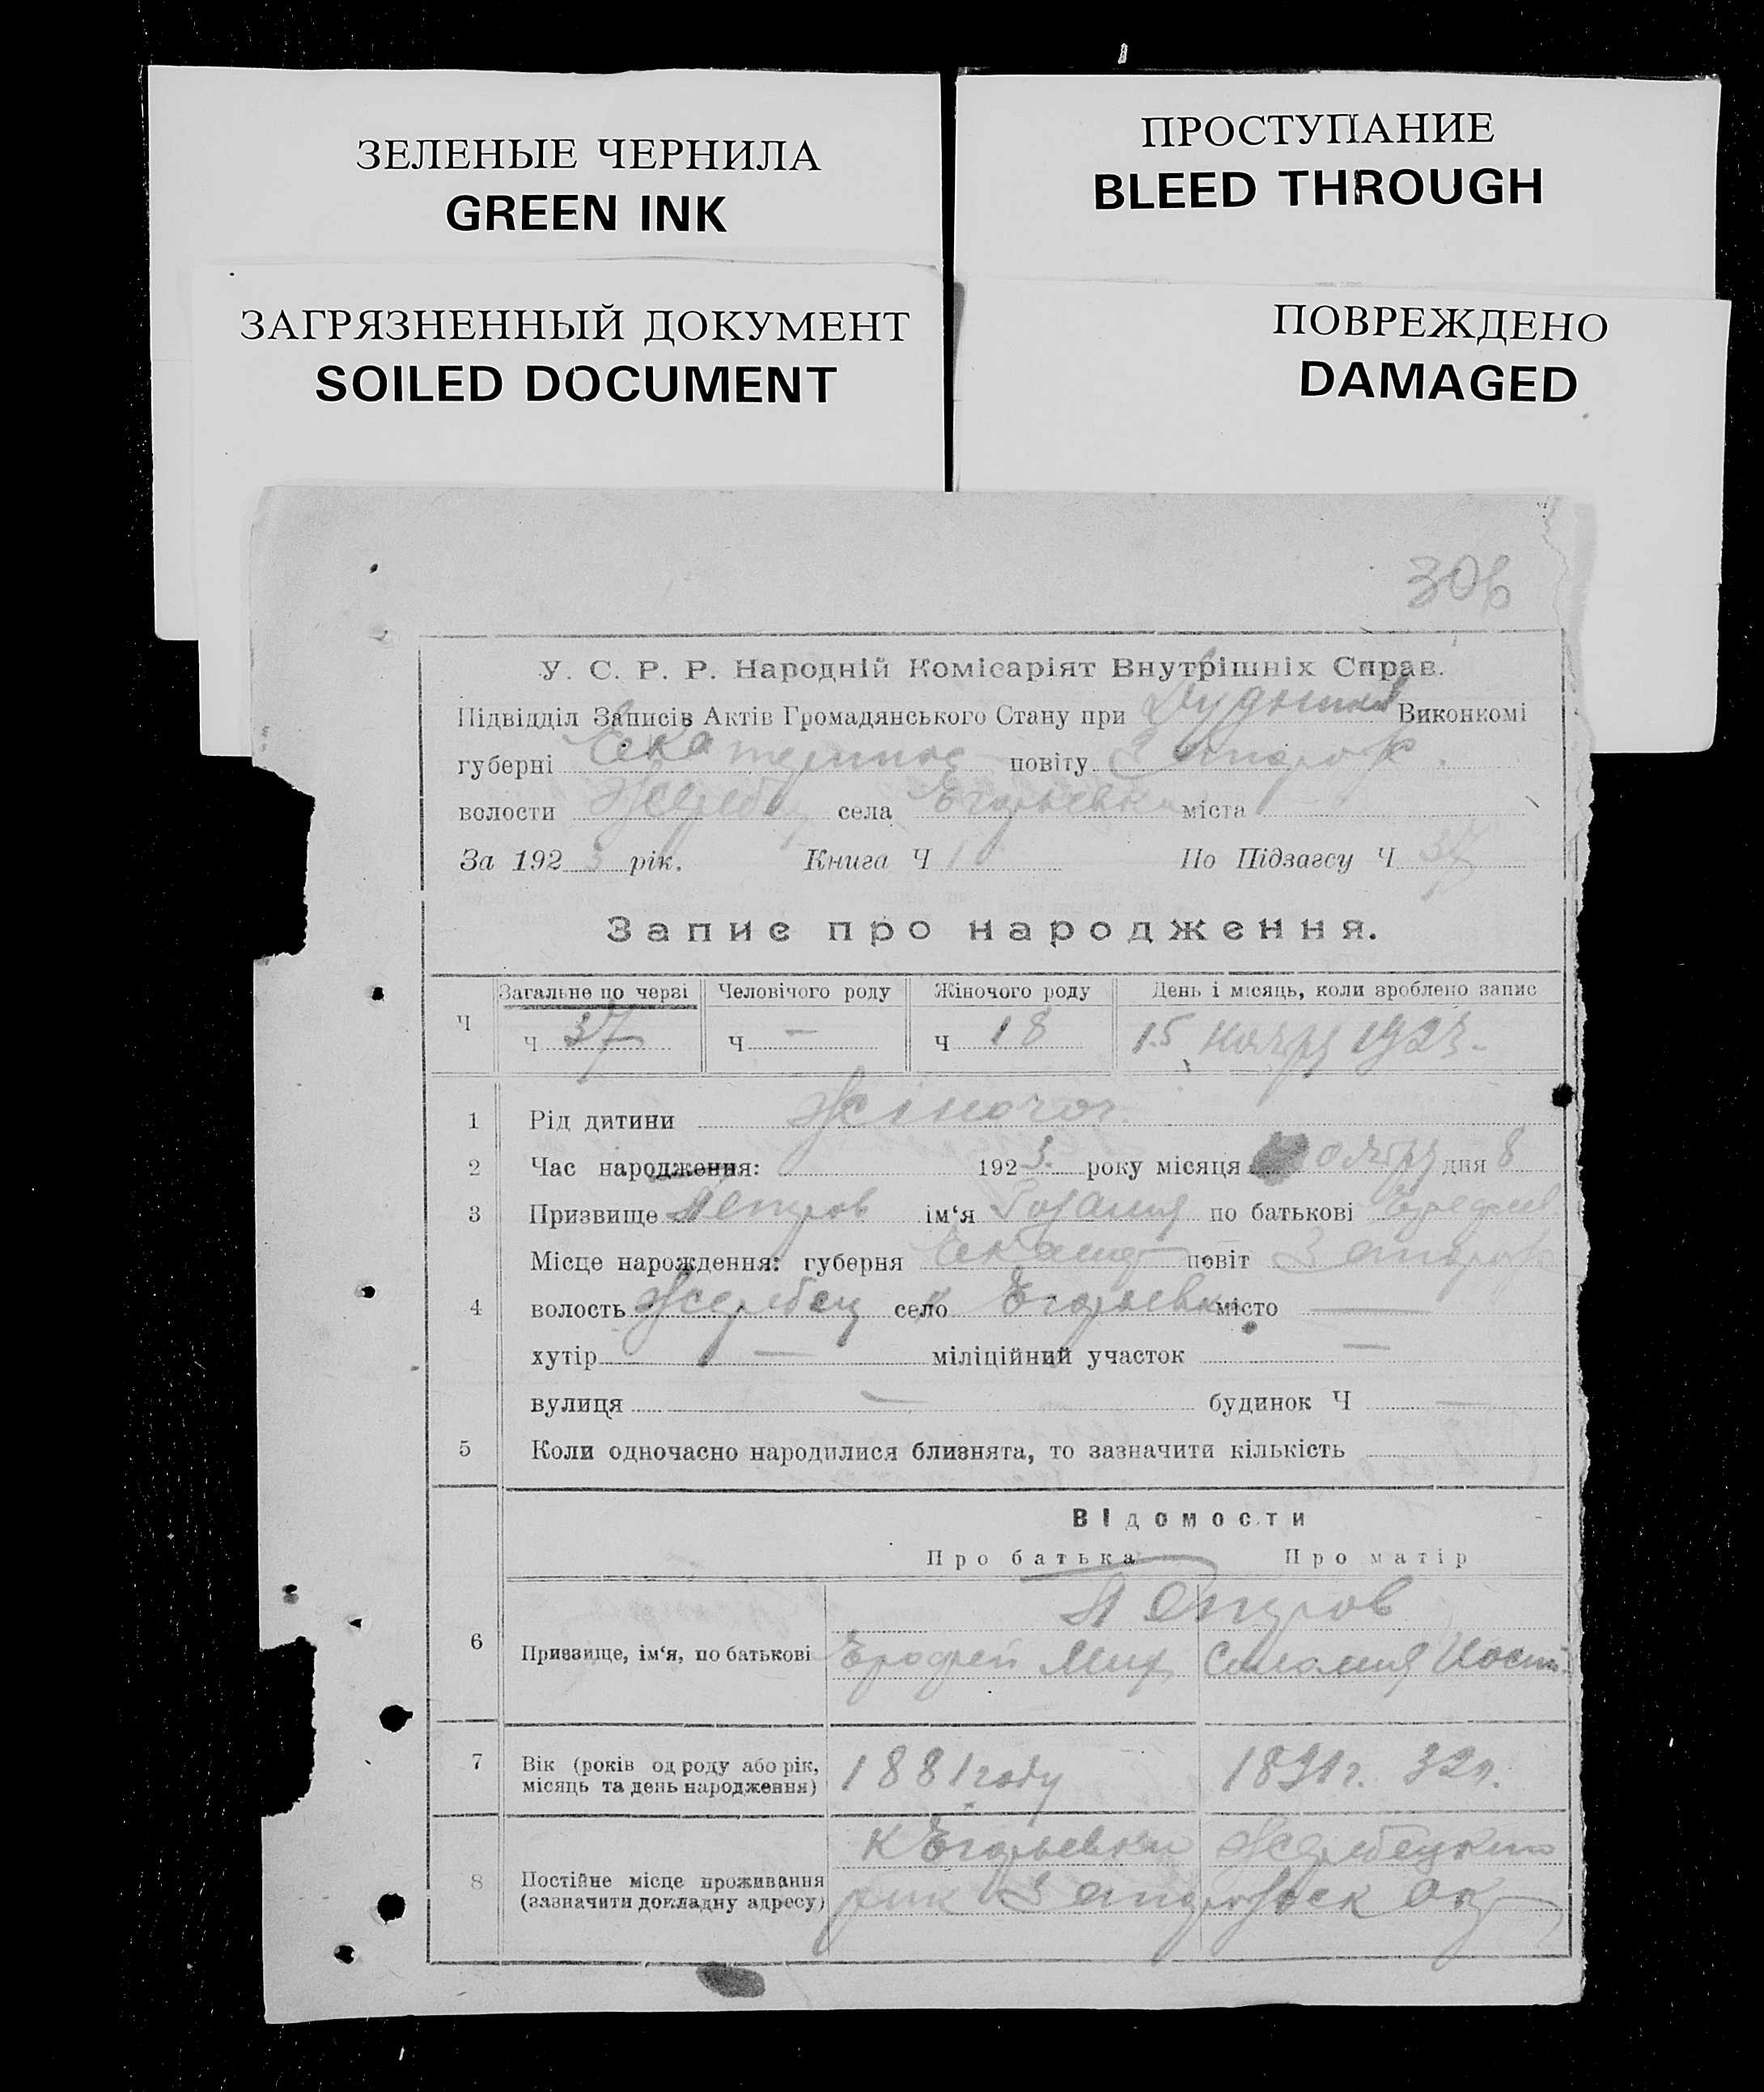 ЗЕЛЕНЫЕ ЧЕРНИЛА
GREEN INK
ПРОСТУПАНИЕ
BLEED THROUGH
ЗАГРЯЗНЕННЫЙ ДОКУМЕНТ
SOILED DOCUMENT
ПОВРЕЖДЕНО
DAMAGED
306
У. С. Р. Р. Народній Комісаріят Внутрішніх Справ.
Підвідділ Записів Актів Громадянського Стану при Виконкомі
губерні Екатеринос повіту Запорож.
волости Жеребец села Егорьевка міста
За 1923 рік. Книга Ч 1 По Підзагсу Ч 37
Запис про народження.
Ч Загальне по черзі Человічого роду Жіночого роду День і місяць, коли зроблено запис
Ч 37 Ч — Ч 18 15 Ноября 1923
1 Рід дитини Жіночог.
2 Час народження: 1923 року місяця Ноября дня 8
3 Призвище Петров ім'я по батькові
Місце народження: губерня Екатер повіт Запорож
4 волость Жеребец село К Егорьевка місто —
хутір — міліційний участок —
вулиця — будинок Ч —
5 Коли одночасно народилися близнята, то зазначити кількість
Відомости
Про батька Про матір
Петров
6 Призвище, ім'я, по батькові Ерофей Мих Соломия Иосиф.
7 Вік (років од роду або рік, місяць та день народження) 1881 году 1891 г. 32 л.
К Егорьевки Жеребецкого
8 Постійне місце проживання (зазначити докладну адресу) рик Запорожск Ок